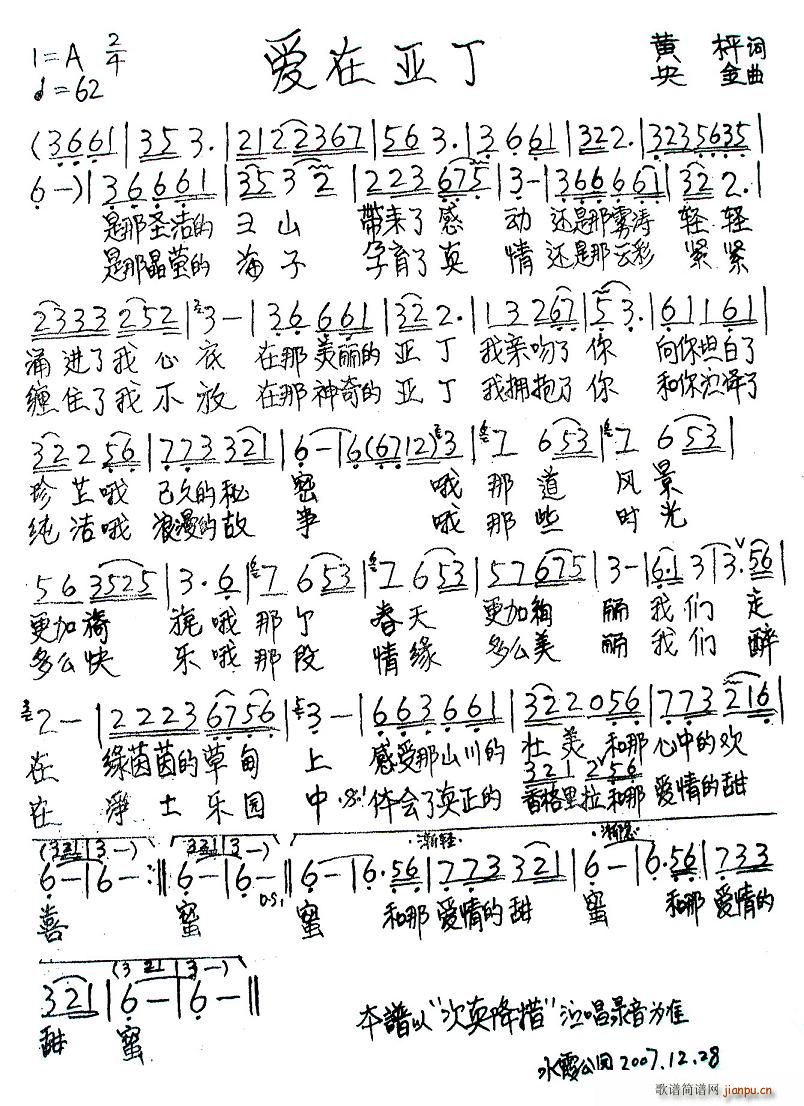 1=A 2/4
♩=62
爱在亚丁
黄枰词
央金曲
(3661|353.|21222367|563.|3661|322.|32356535|
6-)|36661|3532|223675|3-|366661|322.|
是那圣洁的 山 带来了感动 还是那雾涛 轻轻
是那晶莹的海子 孕育了真情 还是那云彩 紧紧
2333252|3-|36661|322.|13267|53.|61161|
涌进了我心底 在那美丽的亚丁 我亲吻了你 向你坦白了
缠住了我不放 在那神奇的亚丁 我拥抱了你 和你演译了
32256|773321|6-|6(6712)3|7653|7653|
珍芷哦 已久的秘密 哦那道风景
纯洁哦 浪漫的故事 哦那些时光
563525|3.6|7653|7653|57675|3-|6.13|3.56|
更加旖旎哦那个春天 更加绚丽 我们走
多么快乐哦那段情缘 多么美丽 我们醉
2-|22236756|3-|663661|322056|773216|
在 绿茵茵的草甸上 感受那山川的壮美 和那心中的欢
321 2 56
在 净土乐园中 体会了真正的香格里拉和那爱情的甜
渐轻 渐慢
(321|3-) (321|3-)
6-|6-:‖6-|6-‖6-|6.56|773321|6-|6.56|733
D.S.
喜 蜜 蜜 和那爱情的甜蜜 和那爱情的
(321|3-)
321|6-|6-‖
甜蜜
本譜以"次真降措"演唱录音为准
水霞公园2007.12.28
歌谱简谱网
jianpu.cn